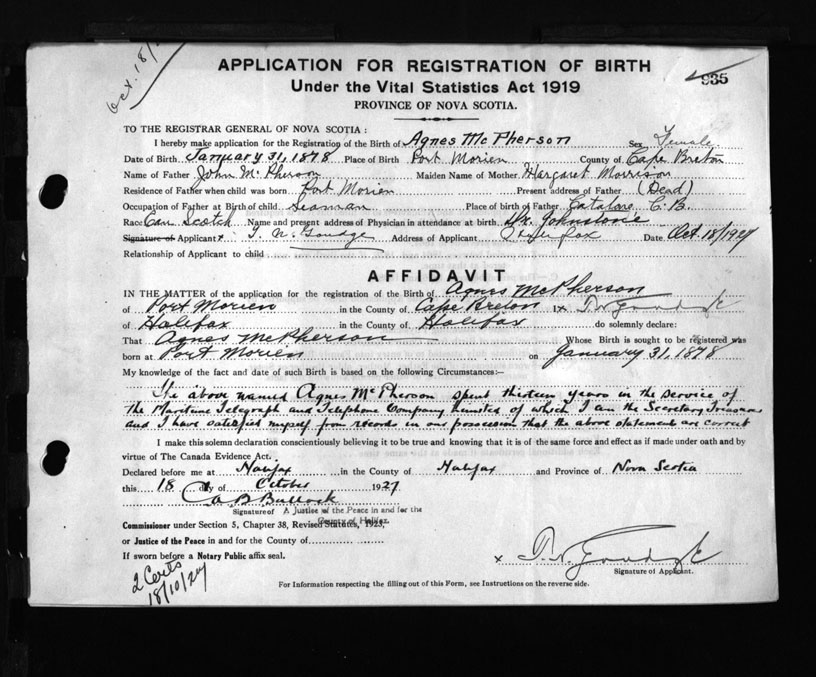 Oct. 18/
APPLICATION FOR REGISTRATION OF BIRTH
935
Under the Vital Statistics Act 1919
PROVINCE OF NOVA SCOTIA.
TO THE REGISTRAR GENERAL OF NOVA SCOTIA:
I hereby make application for the Registration of the Birth of Agnes McPherson Sex Female
Date of Birth January 31, 1878 Place of Birth Port Morien County of Cape Breton
Name of Father John McPherson Maiden Name of Mother Margaret Morrison
Residence of Father when child was born Port Morien Present address of Father (Dead)
Occupation of Father at Birth of child Seaman Place of birth of Father Catalone C.B.
Race Can Scotch Name and present address of Physician in attendance at birth Dr. Johnstone
Signature of Applicant x T. N. Goudge Address of Applicant Halifax Date Oct. 18/1927
Relationship of Applicant to child
AFFIDAVIT
IN THE MATTER of the application for the registration of the Birth of Agnes McPherson
of Port Morien in the County of Cape Breton I x
of Halifax in the County of Halifax do solemnly declare:
That Agnes McPherson Whose Birth is sought to be registered was
born at Port Morien on January 31, 1878
My knowledge of the fact and date of such Birth is based on the following Circumstances:—
The above named Agnes McPherson spent thirteen years in the service of
the Maritime Telegraph and Telephone Company Limited of which I am the Secretary Treasurer
and I have satisfied myself from records in our possession that the above statement are correct
I make this solemn declaration conscientiously believing it to be true and knowing that it is of the same force and effect as if made under oath and by
virtue of The Canada Evidence Act.
Declared before me at Halifax in the County of Halifax and Province of Nova Scotia
this 18 day of October 1927
Bullock
Signature of A Justice of the Peace in and for the
County of Halifax.
Commissioner under Section 5, Chapter 38, Revised Statutes, 1923,
or Justice of the Peace in and for the County of
If sworn before a Notary Public affix seal.
x T. N. Goudge
Signature of Applicant.
2 Certs
18/10/27
For Information respecting the filling out of this Form, see Instructions on the reverse side.